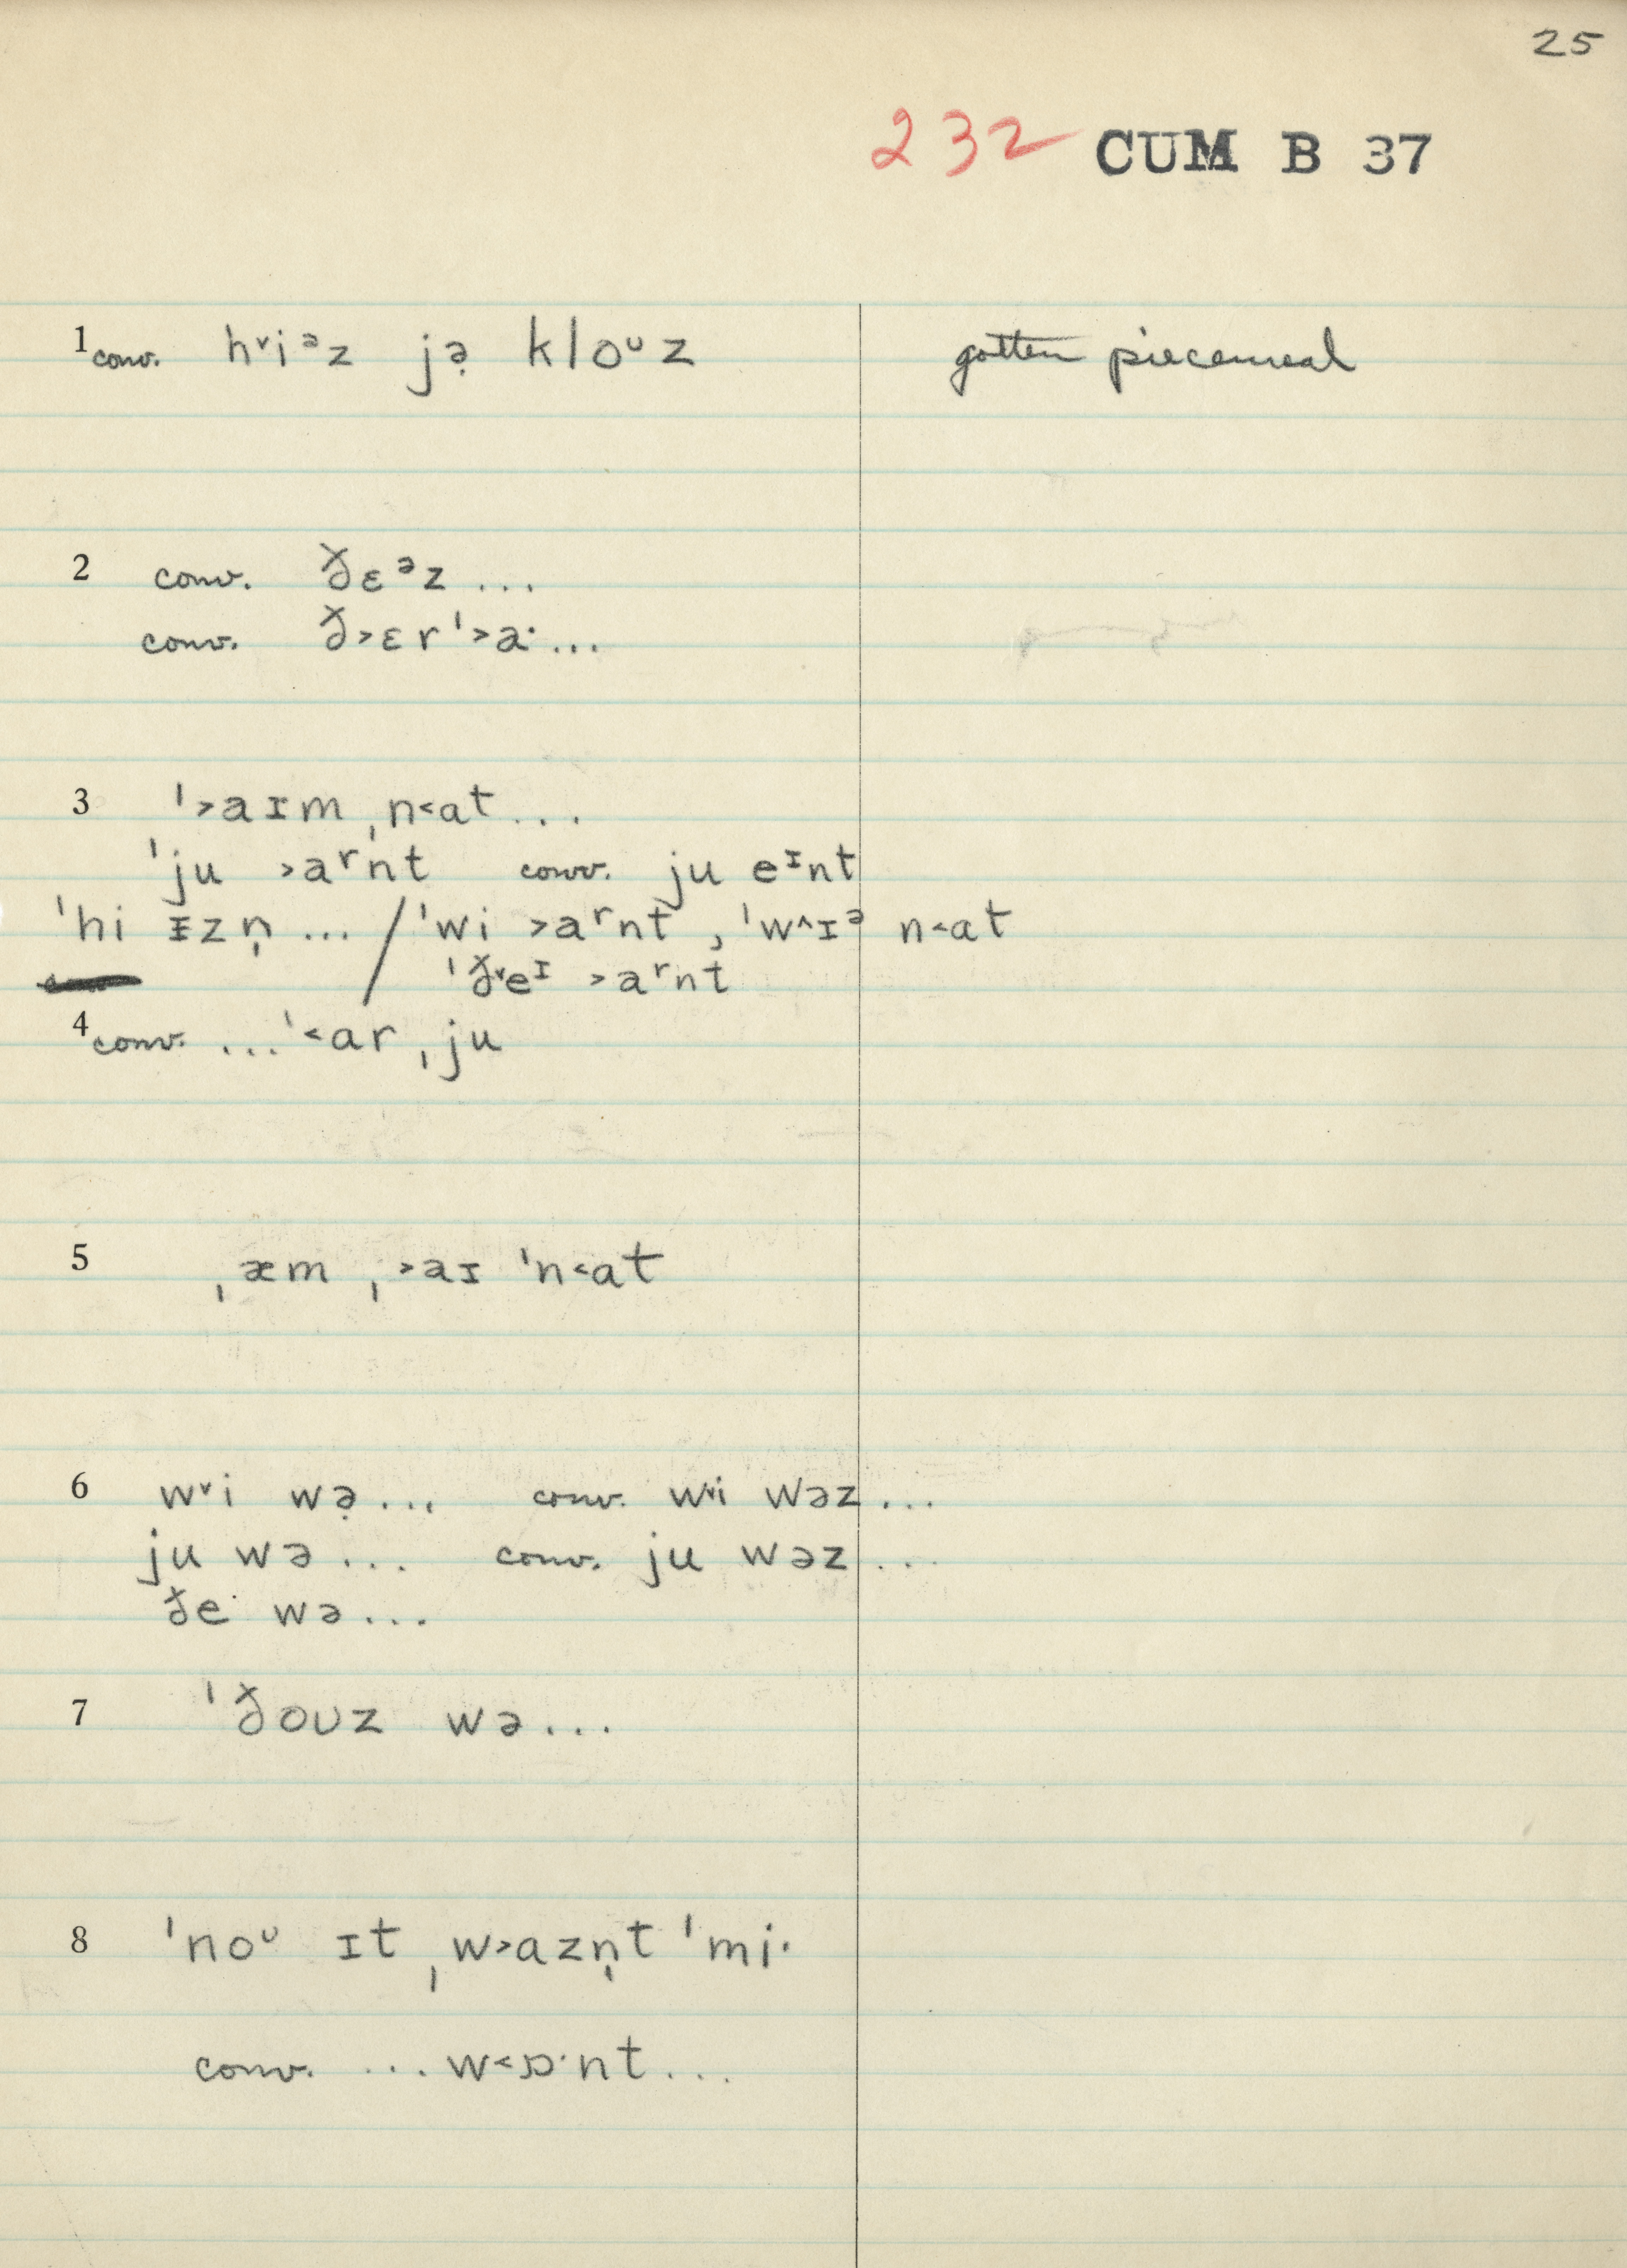 25
232 CUM B 37
1 conv. h˅iᵊz jə̣ kloᶸz gotten piecemeal
2 conv. ðɛᵊz ...
conv. ð˃ɛrˈ˃a· ...
3 ˈ˃aɪm ˌn˂at ...
ˈju ˃aʳnt conv. ju eᶦnt
ˈhi ɪzn̩ ... / ˈwi ˃aʳnt , ˈw˄ɪᵊ n˂at
ˈð˅eᶦ ˃aʳnt
4 conv. ... ˈ˂ar ˌju
5 ˌæm ˌ˃aɪ ˈn˂at
6 w˅i wə̣ ... conv. w˅i wəz ...
ju wə ... conv. ju wəz ...
ðe· wə ...
7 ˈðoʊz wə ...
8 ˈnoᶸ ɪt ˌw˃azn̩t ˈmi·
conv. ... w˂ɒ·nt ...